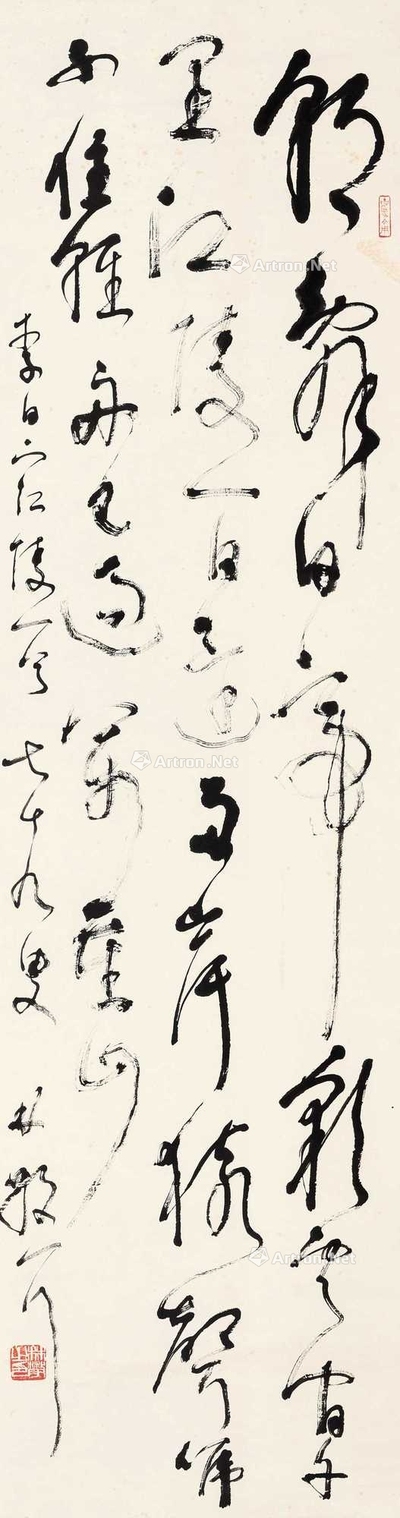 朝辭白帝彩雲間千
里江陵一日還兩岸猿聲啼
不住輕舟已過萬重山
李白下江陵一首 七十九叟 林散耳
Artron.Net
Artron.Net
Artron.Net